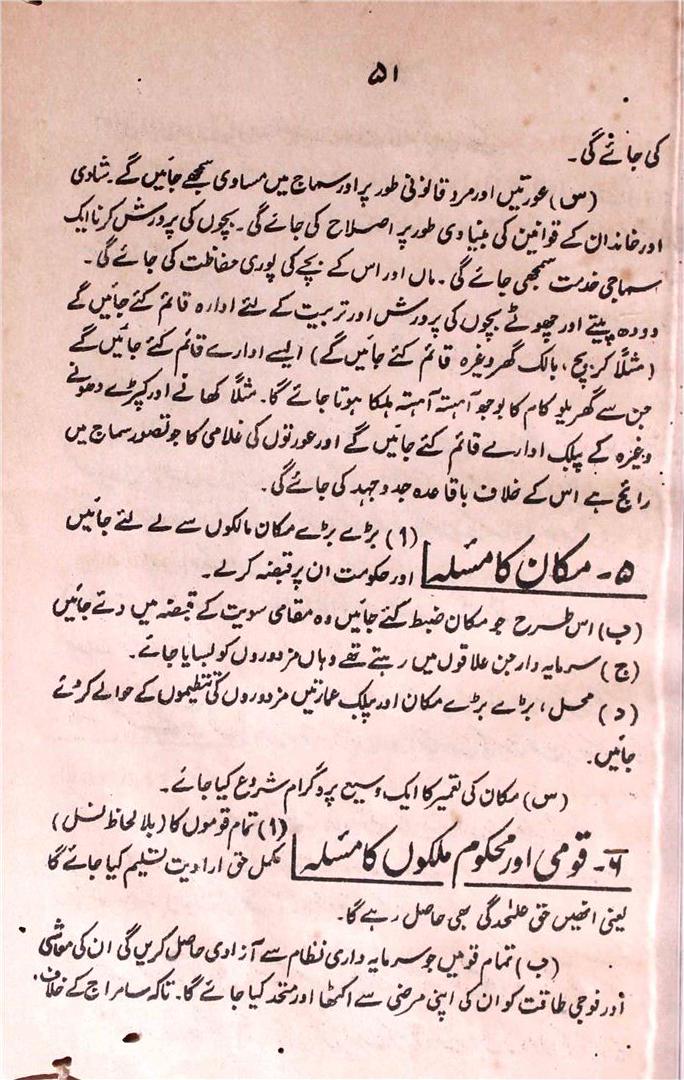 ۵۱
کی جائے گی۔
(س) عورتیں اور مرد قانونی طور پر اور سماج میں مساوی سمجھے جائیں گے۔ شادی
اور خاندان کے قوانین کی بنیادی طور پر اصلاح کی جائے گی۔ بچوں کی پرورش کرنا ایک
سماجی خدمت سمجھی جائے گی۔ ماں اور اس کے بچے کی پوری حفاظت کی جائے گی۔
دودھ پیتے اور چھوٹے بچوں کی پرورش اور تربیت کے لئے ادارہ قائم کئے جائیں گے
(مثلاً کریچ، بالک گھر وغیرہ قائم کئے جائیں گے) ایسے ادارے قائم کئے جائیں گے
جن سے گھریلو کام کا بوجھ آہستہ آہستہ ہلکا ہوتا جائے گا۔ مثلاً کھانے اور کپڑے دھونے
وغیرہ کے پبلک ادارے قائم کئے جائیں گے اور عورتوں کی غلامی کا جو تصور سماج میں
رائج ہے اس کے خلاف باقاعدہ جدوجہد کی جائے گی۔
۵۔ مکان کا مسئلہ
(۱) بڑے بڑے مکان مالکوں سے لے لئے جائیں
اور حکومت ان پر قبضہ کرلے۔
(ب) اس طرح جو مکان ضبط کئے جائیں وہ مقامی سویت کے قبضہ میں دئے جائیں
(ج) سرمایہ دار جن علاقوں میں رہتے تھے وہاں مزدوروں کو بسایا جائے۔
(د) محل، بڑے بڑے مکان اور پبلک عمارتیں مزدوروں کی تنظیموں کے حوالے کر دئے
جائیں۔
(س) مکان کی تعمیر کا ایک وسیع پروگرام شروع کیا جائے۔
۶۔ قومی اور محکوم ملکوں کا مسئلہ
(۱) تمام قوموں کا (بلا لحاظ نسل)
مکمل حق ارادیت تسلیم کیا جائے گا
یعنی انھیں حق علٰحدگی بھی حاصل رہے گا۔
(ب) تمام قومیں جو سرمایہ داری نظام سے آزادی حاصل کریں گی ان کی معاشی
اور فوجی طاقت کو ان کی اپنی مرضی سے اکٹھا اور متحد کیا جائے گا۔ تاکہ سامراج کے خلاف